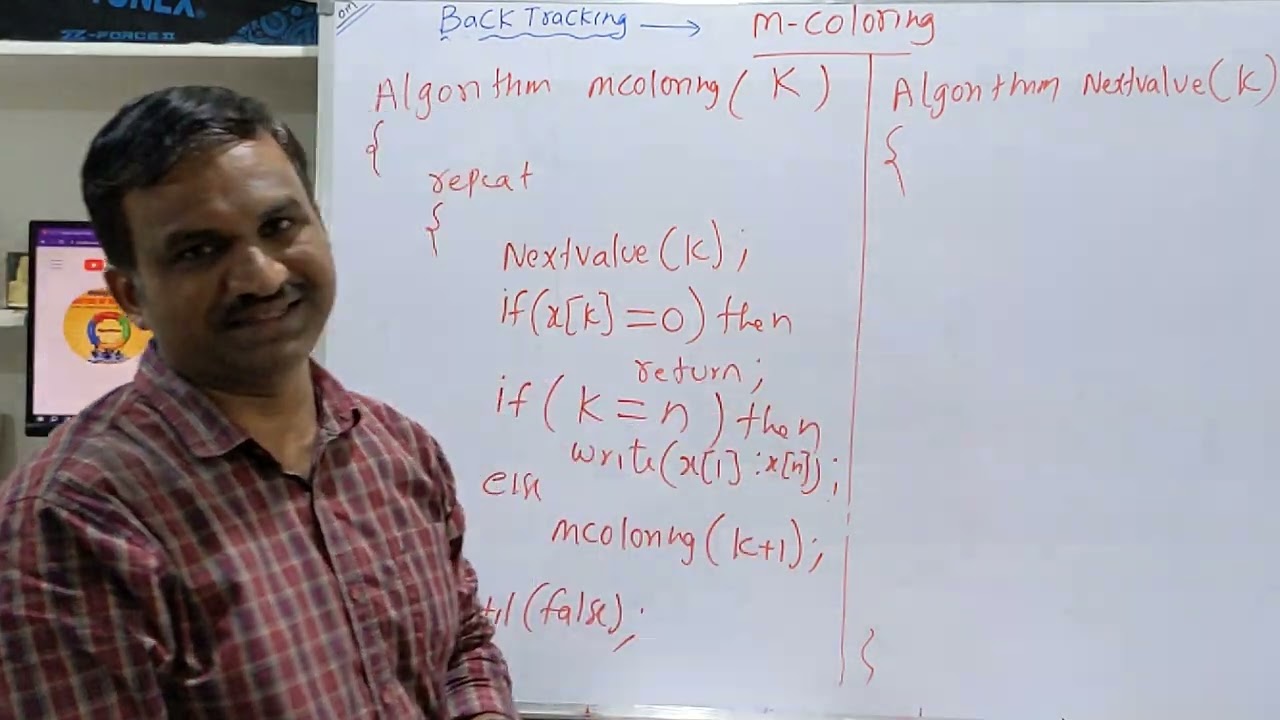 YONEX
Z-FORCE II
om
Back Tracking → m-coloring
Algorithm mcoloring(K)
{
repeat
{
Nextvalue(k);
if(x[k]=0) then
return;
if(k=n) then
write(x[1]:x[n]);
else
mcoloring(k+1);
til(false);
Algorithm Nextvalue(k)
{
}